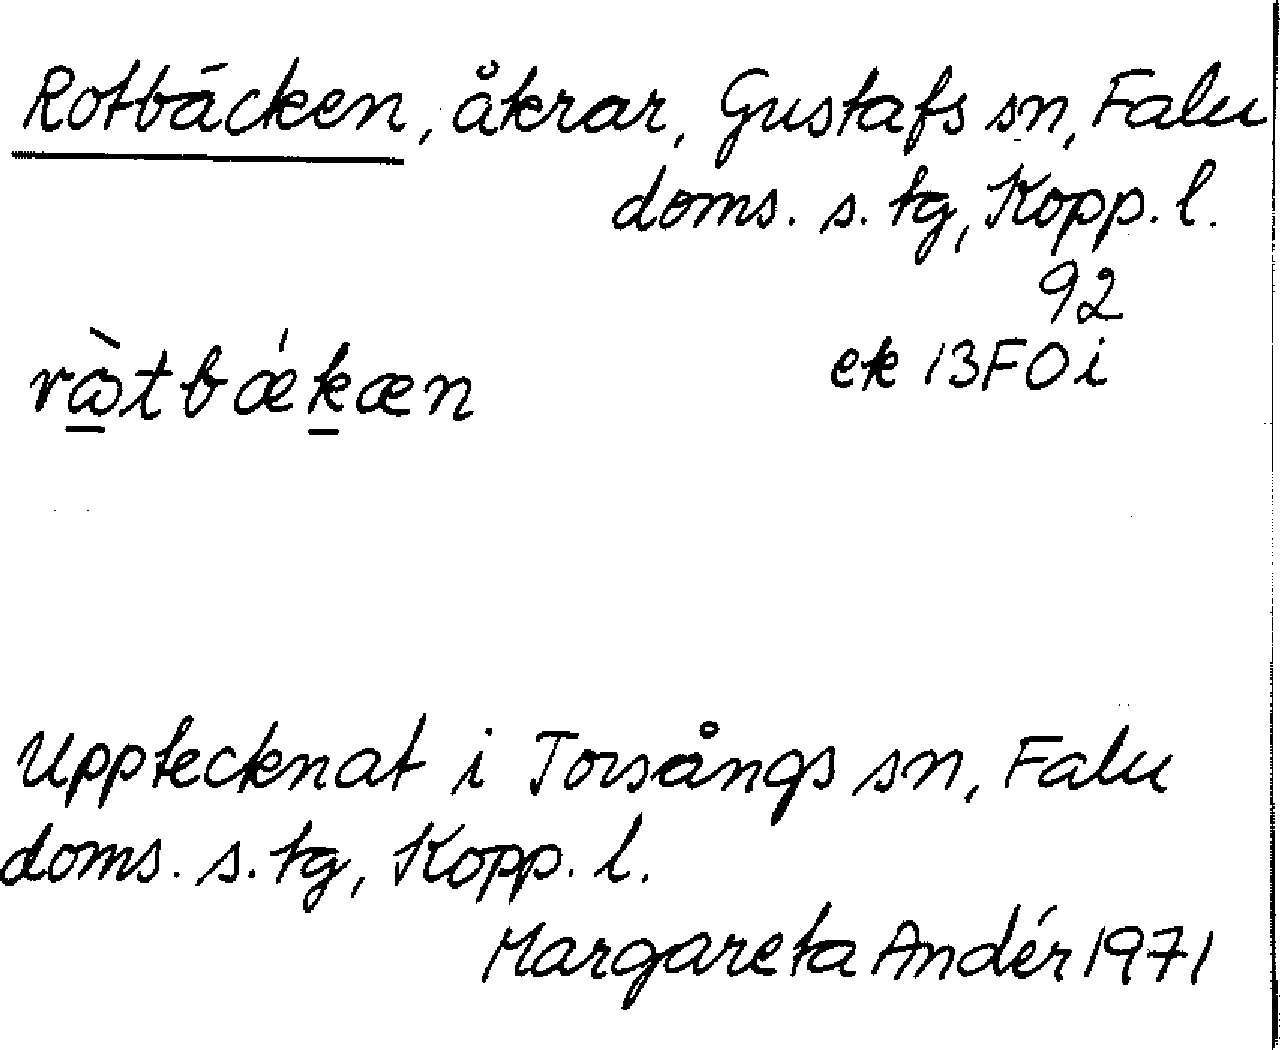 Rotbäcken, åkrar, Gustafs sn, Falu
doms. s. tg, Kopp. l.
92
ek 13F0i
rὼtbǽk̲æn
Upptecknat i Torsångs sn, Falu
doms. s. tg, Kopp. l.
Margareta Andér 1971